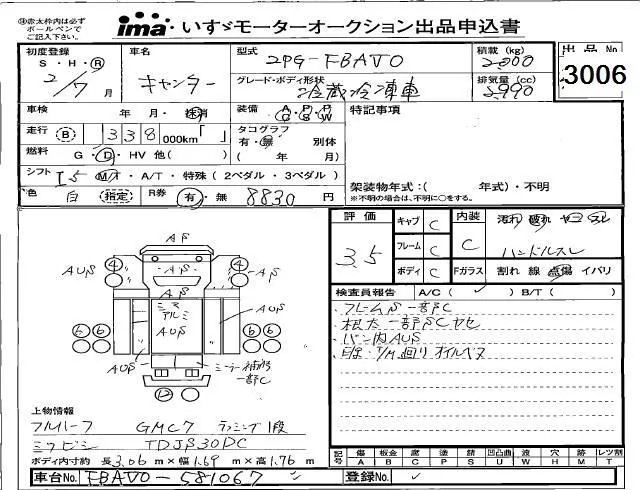 ※赤太枠内は必ず
ボールペンで
ご記入下さい。
ima いすゞモーターオークション出品申込書
初度登録 車名 型式 積載(kg) 出品No
S・H・R キャンター 2PG-FBAV0 2000 3006
2/7月 グレード・ボディ形状 排気量(cc)
冷蔵冷凍車 2990
車検 年 月・抹消 装備 A/C P/S P/W 特記事項
走行 B 338 000km「 」 タコグラフ
有・無 別体
燃料 G・D・HV 他( ) ( 年 月)
シフト I5 M/T・A/T・特殊(2ペダル・3ペダル) 架装物年式:( 年式)・不明
色 白 指定 R券 有・無 8830円 ※不明の場合は、不明に○をする。
評価 キャブ C 内装 汚れ 破れ ヤコ スレ
3.5 フレーム C C ハンドルスレ
ボディ C Fガラス 割れ 線 点傷 イバリ
検査員報告 A/C( ✓ ) B/T( )
・フレームS 一部C
・根太一部SCヤセ
・バン内AUS
AS
4 4
AUS AS AUS
AS
ミラー
アルミ
AUS
6 6 6 6
AUS
ミラー補修
一部C
12
上物情報
フルハーフ GMC7 ラッシング1段
ミツビシ TDJS30DC
ボディ内寸約 長3.06m×幅1.69m×高1.76m
記号 傷 板金 腐 塗 錆 凹凸曲 波 穴 跡 レツ割
A B C P S U W H M T
車台No. FBAV0-581067 登録No.